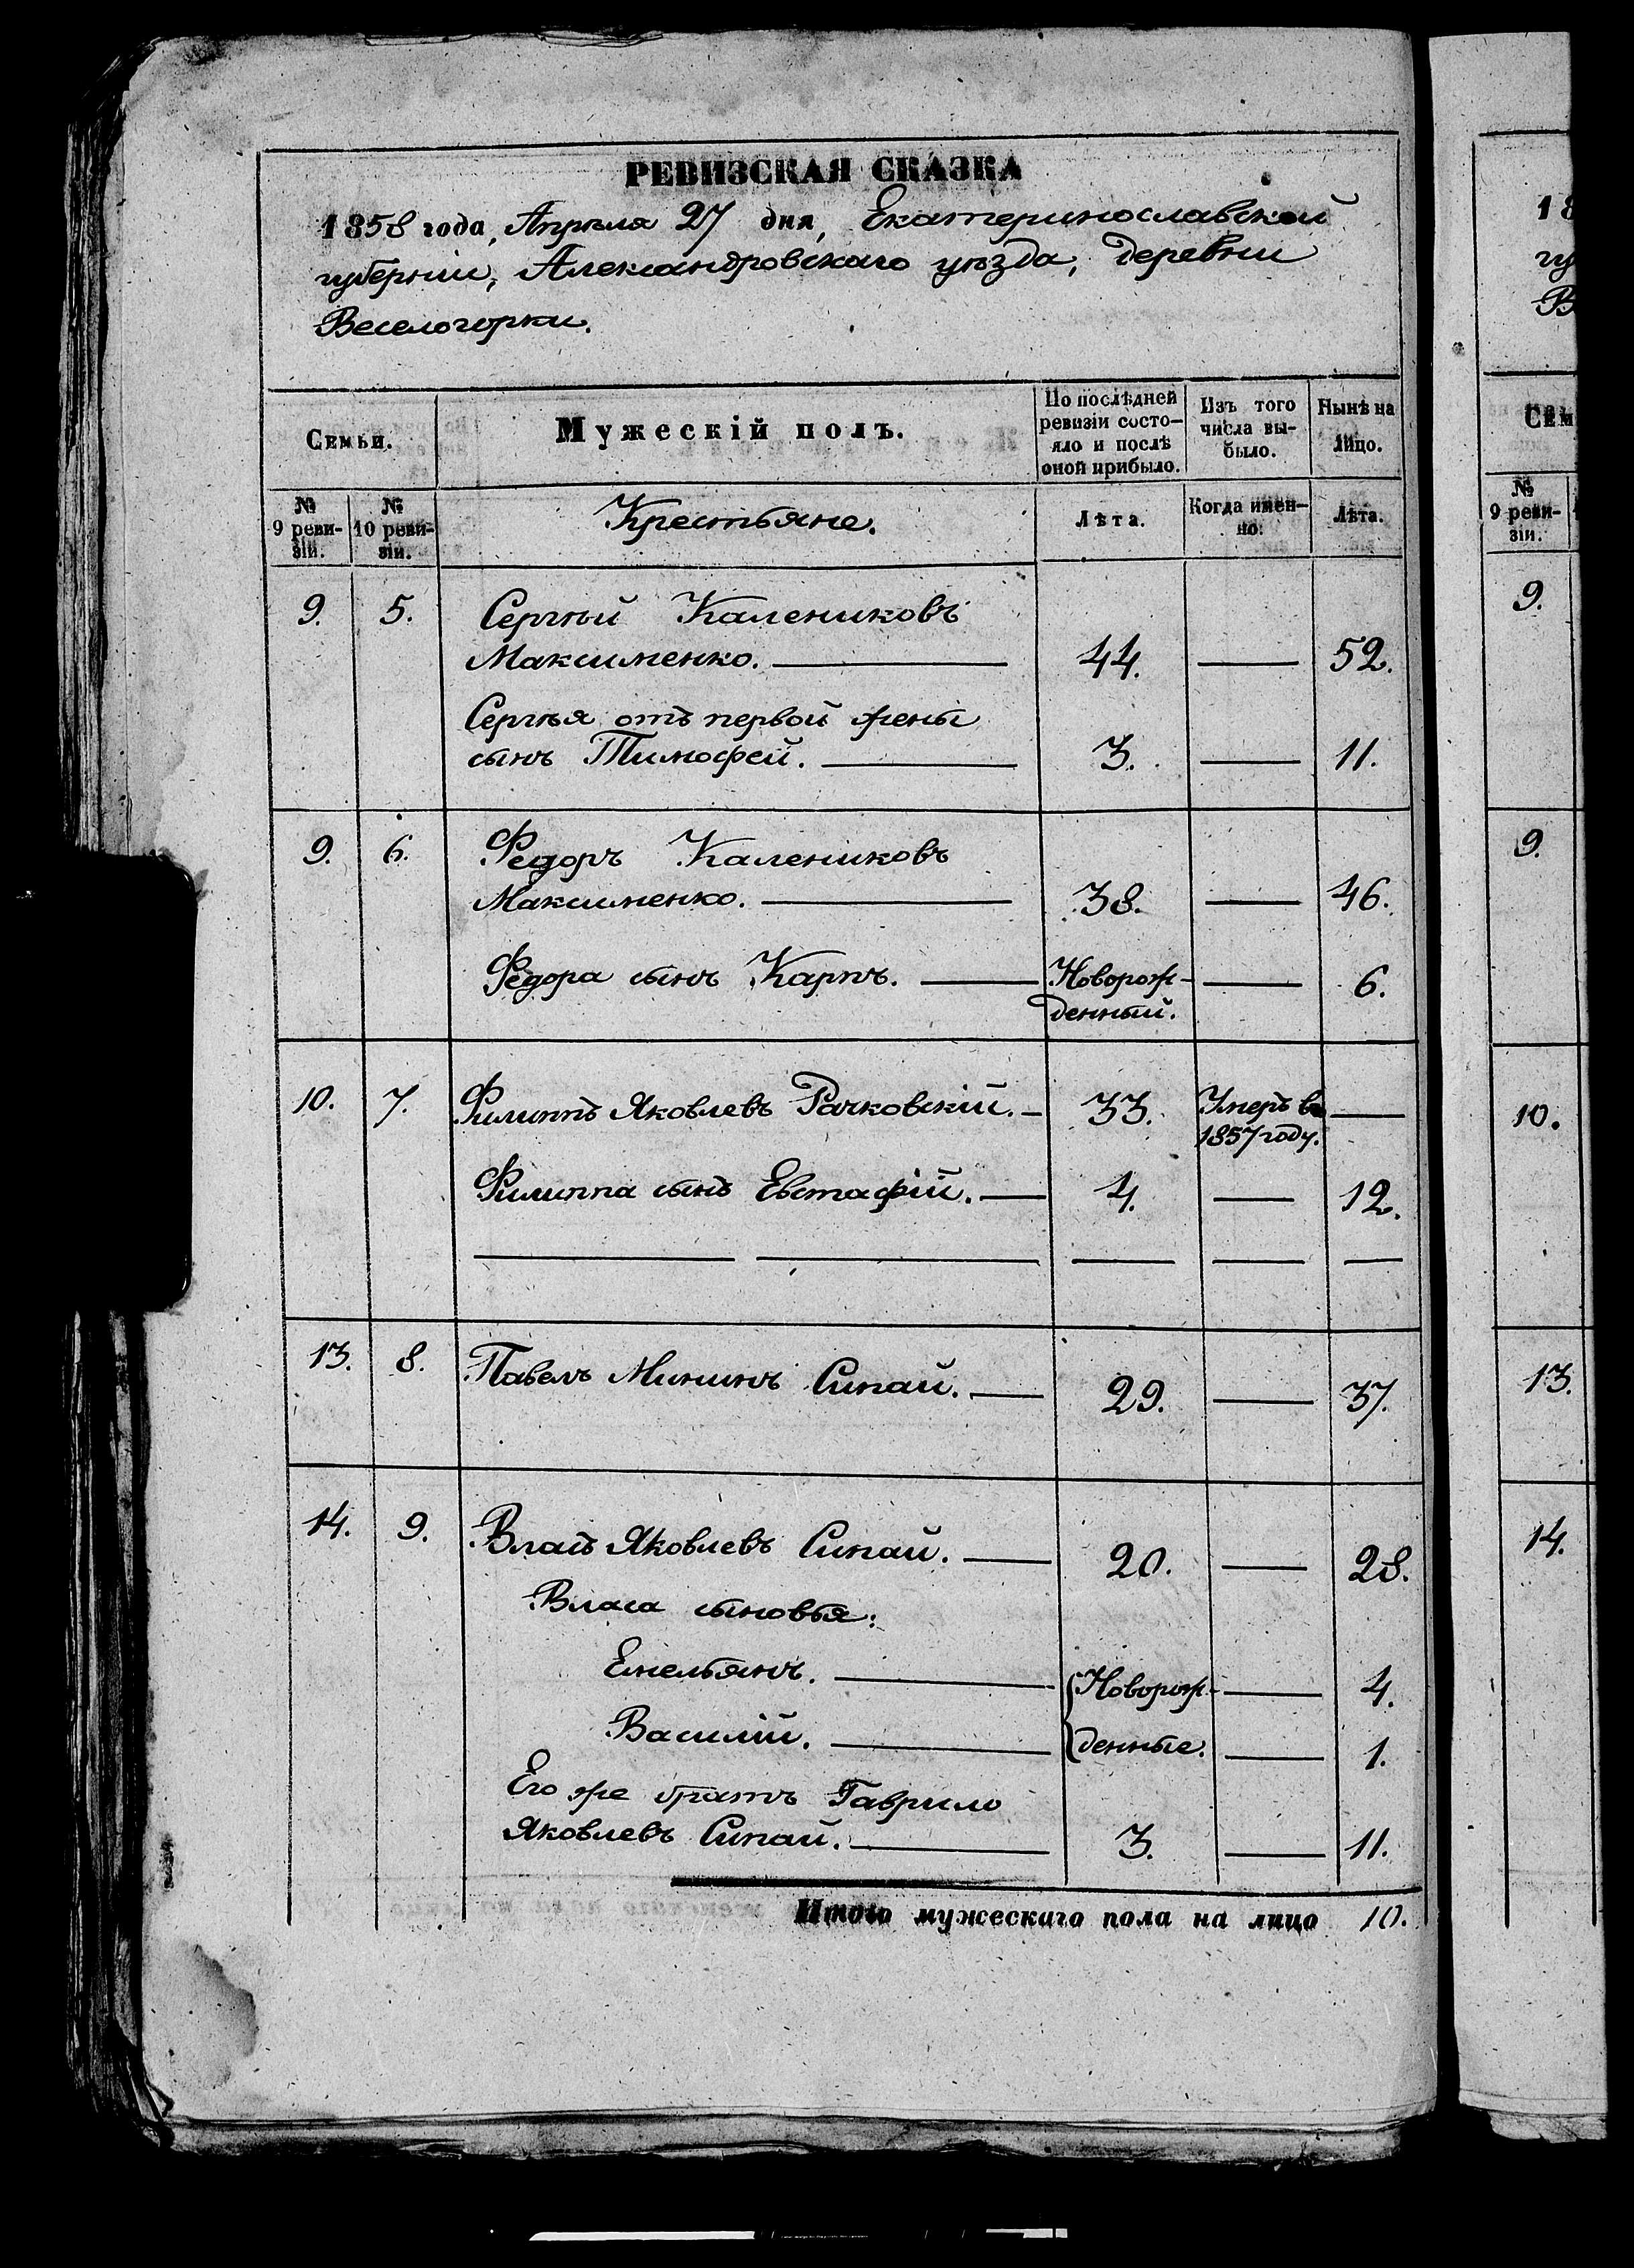 РЕВИЗСКАЯ СКАЗКА
1858 года, Апрѣля 27 дня, Екатеринославской
губерніи, Александровскаго уѣзда, деревни
Веселогорки.
Семьи.
Мужескій полъ.
По послѣдней
ревизіи состо-
яло и послѣ
оной прибыло.
Изъ того
числа вы-
было.
Нынѣ на
лицо.
№
9 реви-
зіи.
№
10 реви-
зіи.
Крестьяне.
Лѣта.
Когда имен-
но.
Лѣта.
9. 5. Сергѣй Калениковъ
Максименко. — 44. — 52.
Сергѣя отъ первой жены
сынъ Тимофей. — 3. — 11.
9. 6. Федоръ Калениковъ
Максименко. — 38. — 46.
Федора сынъ Карпъ. — Новорож- — 6.
денный.
10. 7. Филиппъ Яковлевъ Рачковскій. — 33. Умеръ въ —
1857 году.
Филиппа сынъ Евстафій. — 4. — 12.
13. 8. Павелъ Мининъ Сипай. — 29. — 37.
14. 9. Власъ Яковлевъ Сипай. — 20. — 28.
Власа сыновья:
Емельянъ. — Новорож- — 4.
Василій. — денные. — 1.
Его же братъ Гаврило
Яковлевъ Сипай. — 3. — 11.
Итого мужескаго пола на лицо 10.
18
гу
В
Сем
№
9 реви-
зіи.
9.
9.
10.
13.
14.